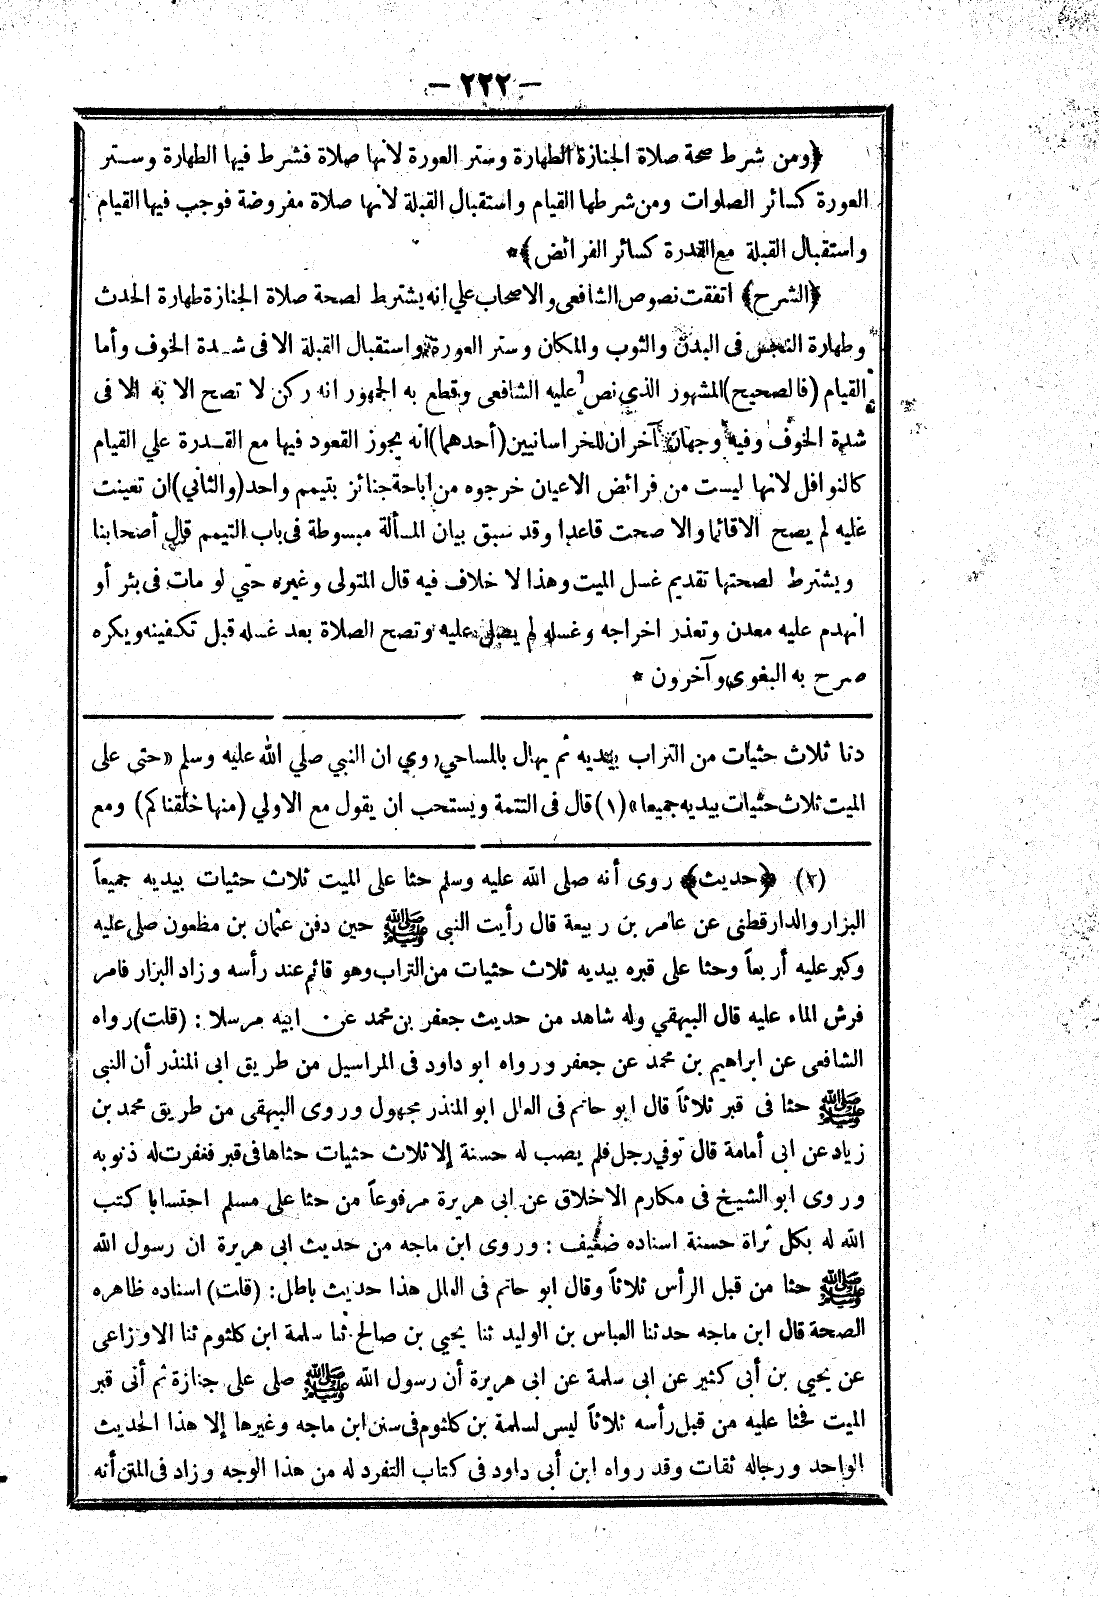 — ٢٢٢ —
﴿ومن شرط صحة صلاة الجنازة الطهارة وستر العورة لانها صلاة فشرط فيها الطهارة وستر
العورة كسائر الصلوات ومن شرطها القيام واستقبال القبلة لانها صلاة مفروضة فوجب فيها القيام
واستقبال القبلة مع القدرة كسائر الفرائض﴾*
﴿الشرح﴾ اتفقت نصوص الشافعى والاصحاب علي انه يشترط لصحة صلاة الجنازة طهارة الحدث
وطهارة النجس فى البدن والثوب والمكان وستر العورة واستقبال القبلة الا فى شدة الخوف وأما
القيام (فالصحيح) المشهور الذي نص عليه الشافعى وقطع به الجمهور انه ركن لا تصح الا به الا فى
شدة الخوف وفيه وجهان آخران للخراسانيين (أحدهما) انه يجوز القعود فيها مع القدرة علي القيام
كالنوافل لانها ليست من فرائض الاعيان خرجوه من اباحة جنائز بتيمم واحد (والثاني) ان تعينت
عليه لم يصح الا قائما والا صحت قاعدا وقد سبق بيان المسألة مبسوطة فى باب التيمم قال أصحابنا
ويشترط لصحتها تقديم غسل الميت وهذا لا خلاف فيه قال المتولى وغيره حتي لو مات فى بئر أو
انهدم عليه معدن وتعذر اخراجه وغسله لم يصل عليه وتصح الصلاة بعد غسله قبل تكفينه ويكره
صرح به البغوى وآخرون *
دنا ثلاث حثيات من التراب بيديه ثم يهال بالمساحي روي ان النبي صلي الله عليه وسلم «حتى على
الميت ثلاث حثيات بيديه جميعا» (١) قال فى التتمة ويستحب ان يقول مع الاولي (منها خلقناكم) ومع
(٢) ﴿حديث﴾ روى أنه صلى الله عليه وسلم حثا على الميت ثلاث حثيات بيديه جميعاً
البزار والدارقطنى عن عامر بن ربيعة قال رأيت النبى ﷺ حين دفن عثمان بن مظعون صلى عليه
وكبر عليه أربعاً وحثا على قبره بيديه ثلاث حثيات من التراب وهو قائم عند رأسه وزاد البزار فامر
فرش الماء عليه قال البيهقي وله شاهد من حديث جعفر بن محمد عن ابيه مرسلا : (قلت) رواه
الشافعى عن ابراهيم بن محمد عن جعفر ورواه ابو داود فى المراسيل من طريق ابى المنذر أن النبى
ﷺ حثا فى قبر ثلاثاً قال ابو حاتم فى العلل ابو المنذر مجهول وروى البيهقى من طريق محمد بن
زياد عن ابى أمامة قال توفي رجل فلم يصب له حسنة إلا ثلاث حثيات حثاها فى قبر فغفرت له ذنوبه
وروى ابو الشيخ فى مكارم الاخلاق عن ابى هريرة مرفوعاً من حثا على مسلم احتسابا كتب
الله له بكل ثراة حسنة اسناده ضعيف : وروى ابن ماجه من حديث ابى هريرة ان رسول الله
ﷺ حثا من قبل الرأس ثلاثاً وقال ابو حاتم فى العلل هذا حديث باطل : (قلت) اسناده ظاهره
الصحة قال ابن ماجه حدثنا العباس بن الوليد ثنا يحيى بن صالح ثنا سلمة ابن كلثوم ثنا الاوزاعى
عن يحيى بن أبى كثير عن ابى سلمة عن ابى هريرة أن رسول الله ﷺ صلى على جنازة ثم أتى قبر
الميت فحثا عليه من قبل رأسه ثلاثاً ليس لسلمة بن كلثوم فى سنن ابن ماجه وغيرها إلا هذا الحديث
الواحد ورجاله ثقات وقد رواه ابن أبى داود فى كتاب التفرد له من هذا الوجه وزاد فى المتن أنه